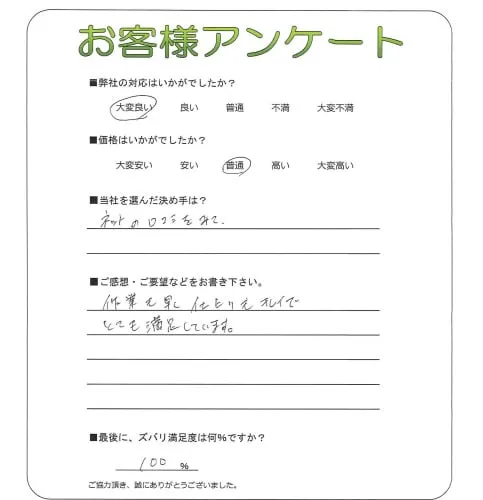 お客様アンケート
■弊社の対応はいかがでしたか？
大変良い 良い 普通 不満 大変不満
■価格はいかがでしたか？
大変安い 安い 普通 高い 大変高い
■当社を選んだ決め手は？
ネットの口コミをみて、
■ご感想・ご要望などをお書き下さい。
作業も早く仕上りもキレイで
とても満足しています。
■最後に、ズバリ満足度は何%ですか？
100 %
ご協力頂き、誠にありがとうございました。